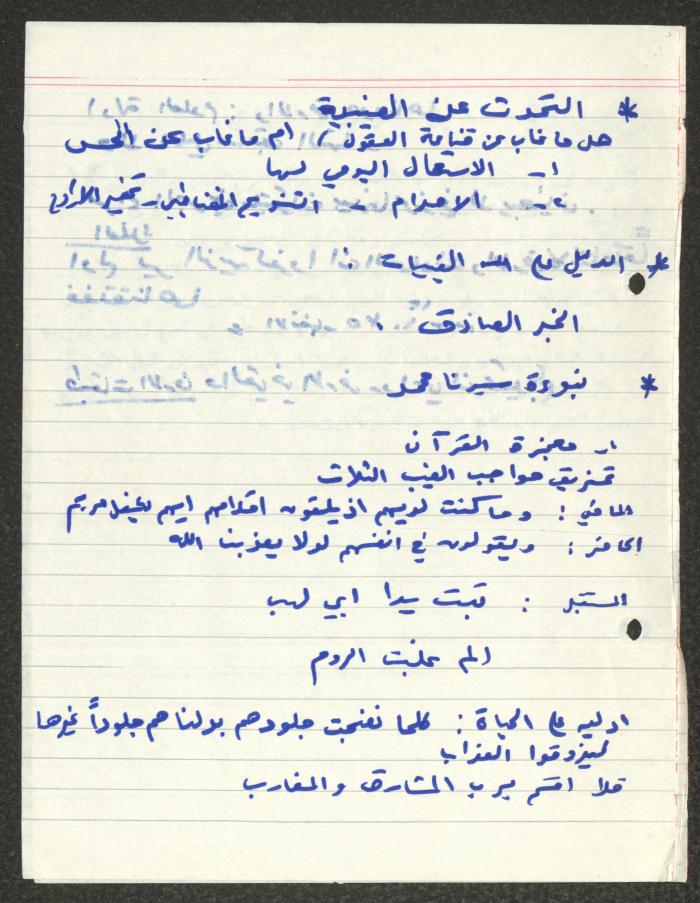 * التحدث عن الغيبية
هل ما غاب عن قناعة العقول / ام ما غاب عن الحس
١ـ الاستعمال اليومي لها
٢ـ الاحزام ـ التنويم المغناطيسي ـ تحضير الارواح
* الدليل على الله الغيبيات
الخبر الصادق .
* نبوءة سيدنا محمد
١ـ معجزة القرآن
تمزيق حواجب الغيب الثلاث
الماضي : وما كنت لديهم اذ يلقون اقلامهم ايهم يكفل مريم
الحاضر : ويقولون في انفسهم لولا يعذبنا الله
المستقبل : تبت يدا ابي لهب
الم غلبت الروم
ادلة على الحياة : كلما نضجت جلودهم بدلناهم جلوداً غيرها
ليذوقوا العذاب
فلا اقسم برب المشارق والمغارب